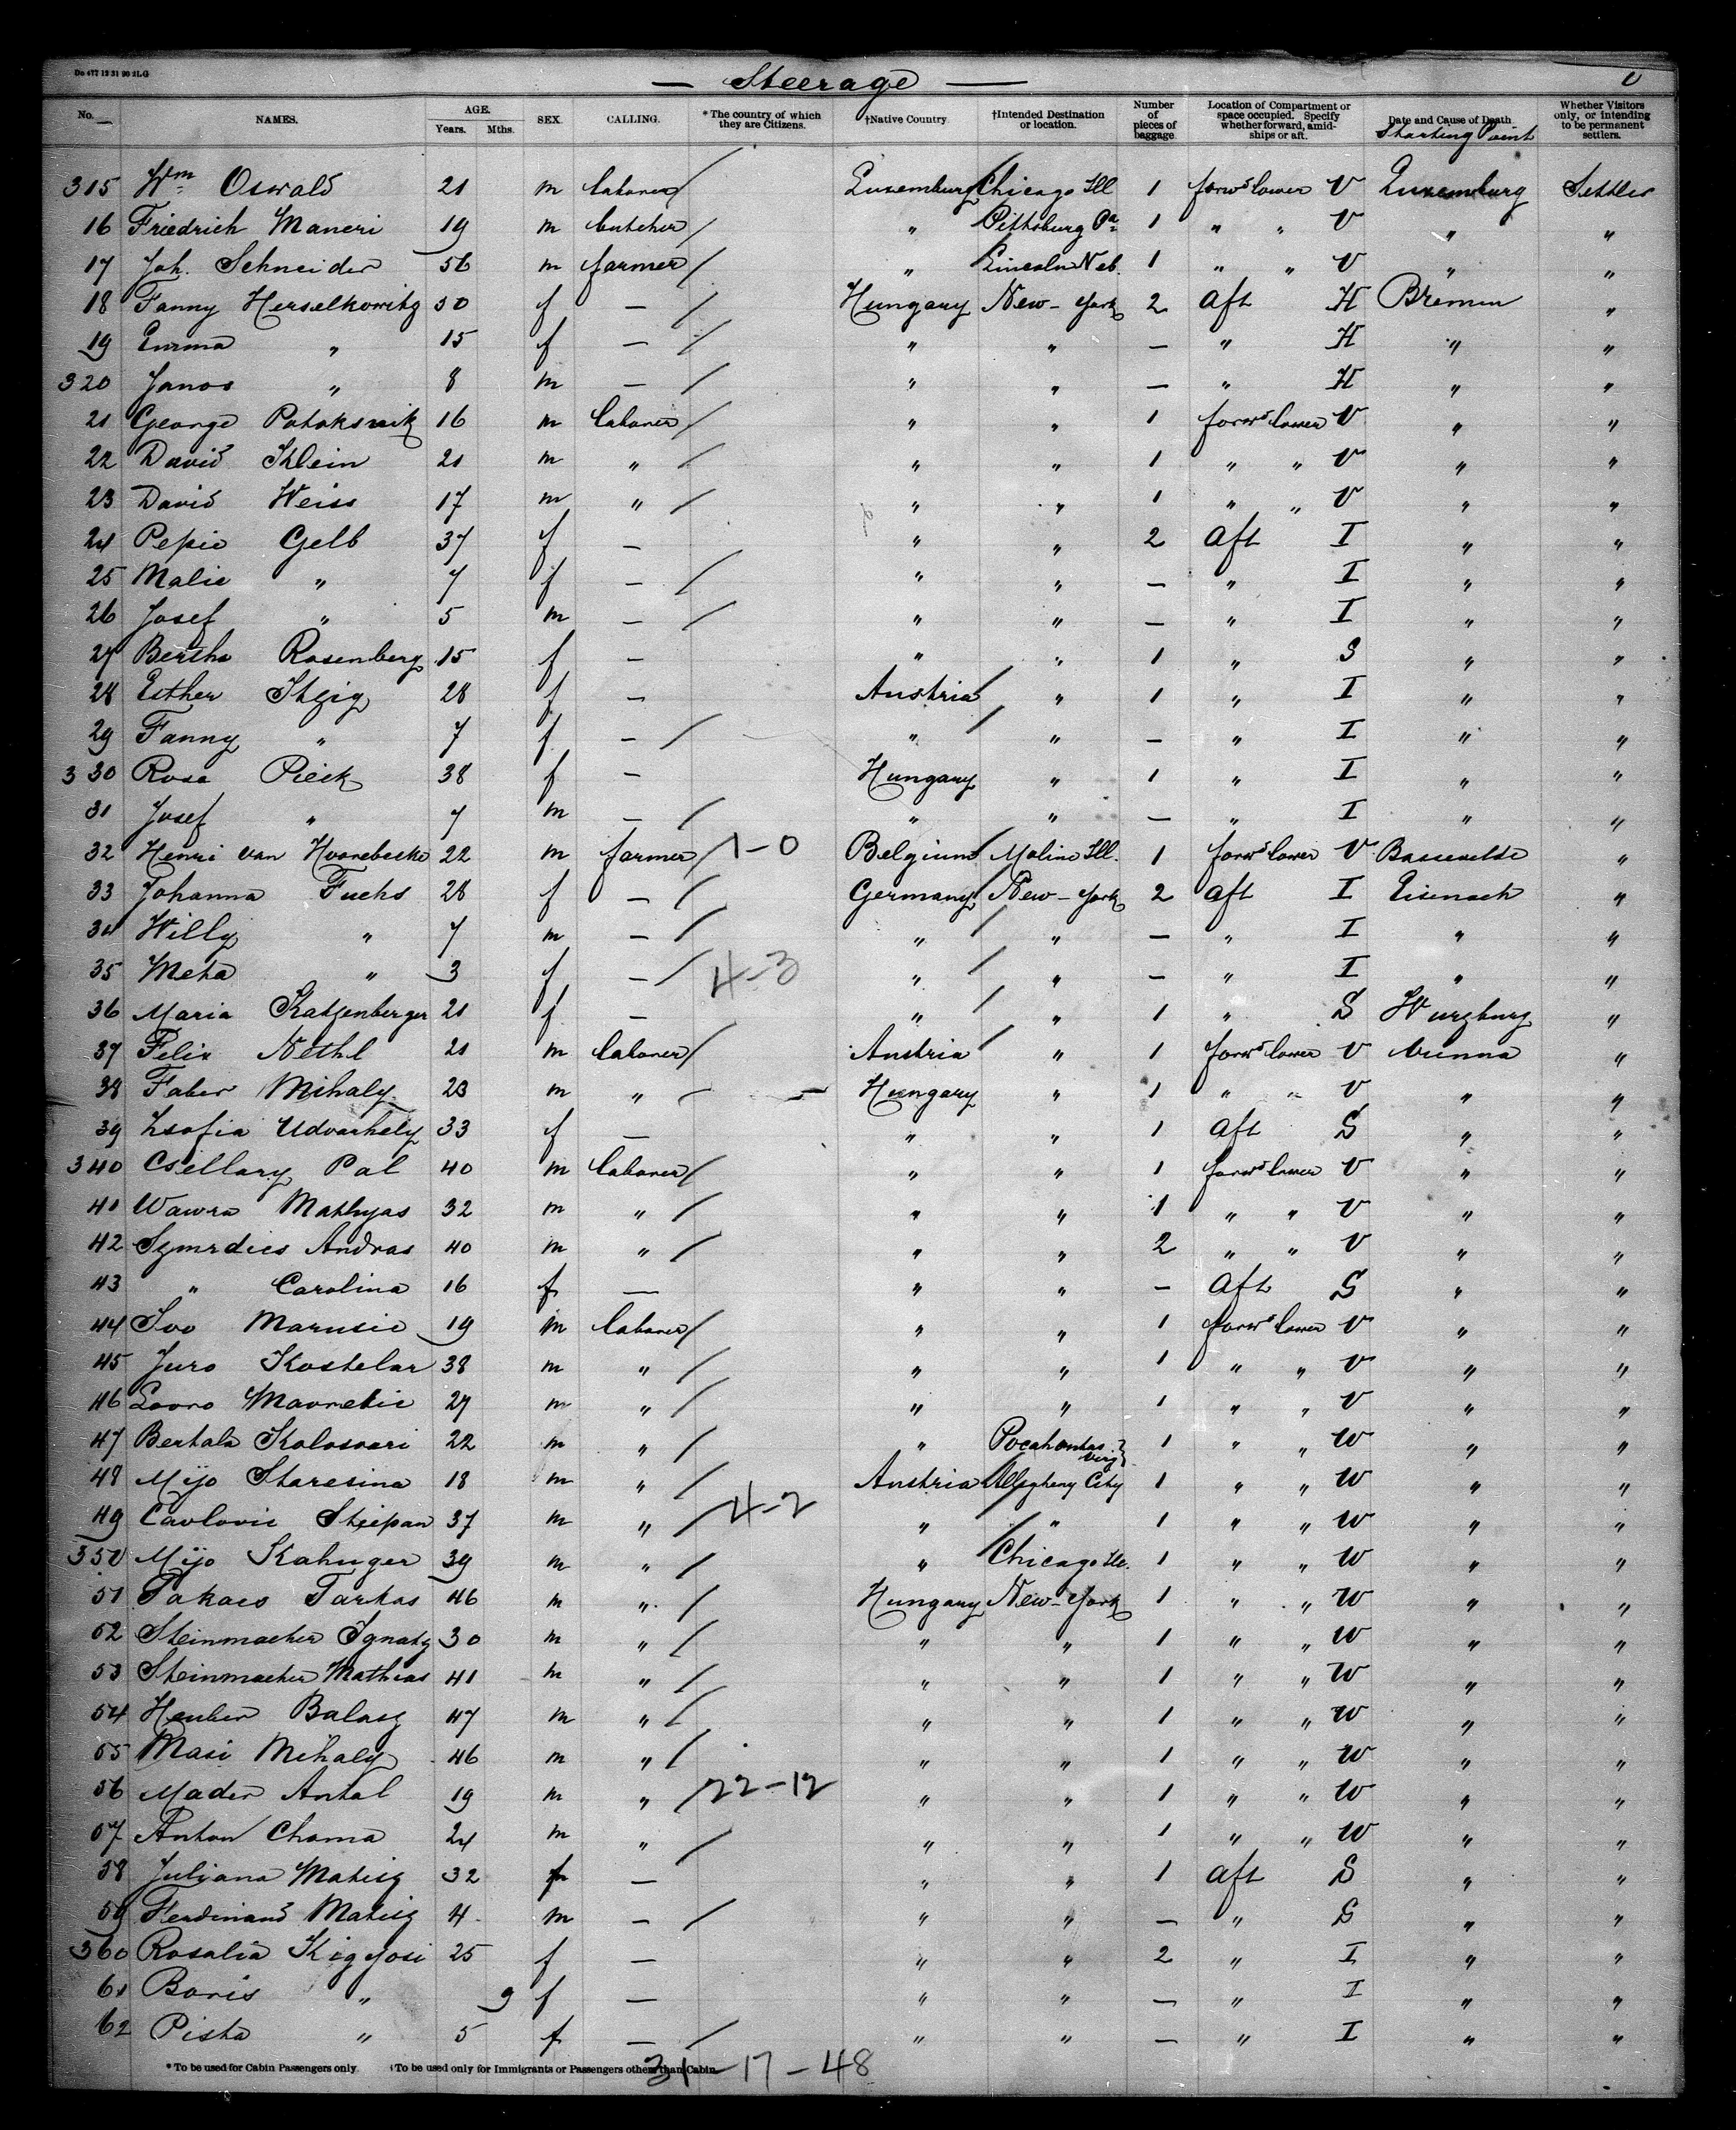 Do 477 12 31 90 2L.G
— Steerage — U
No. NAMES. AGE. Years. Mths. SEX. CALLING. *The country of which they are Citizens. †Native Country †Intended Destination or location. Number of pieces of baggage Location of Compartment or space occupied. Specify whether forward, amidships or aft. Date and Cause of Death Starting Point Whether Visitors only, or intending to be permanent settlers.
315 Wm Oswald 21 m laborer / Luxemburg Chicago Ill 1 forwd lower V Luxemburg Settler
16 Friedrich Maneri 19 m butcher / " Pittsburg Pa 1 " " V " "
17 Joh. Schneider 56 m farmer / " Lincoln Neb. 1 " " V " "
18 Fanny Herselkowitz 50 f — / Hungary New-York 2 aft H Bremen "
19 Emma " 15 f — / " " — " H " "
320 Janos " 8 m — / " " — " H " "
21 George Potoksnik 16 m laborer / " " 1 forwd lower V " "
22 David Klein 21 m " / " " 1 " " V " "
23 David Weiss 17 m " / " " 1 " " V " "
24 Pepie Gelb 37 f — " " 2 aft I " "
25 Malie " 7 f — / " " — " I " "
26 Josef " 5 m — / " " — " I " "
27 Bertha Rosenberg 15 f — " " 1 " S " "
28 Esther Itzig 28 f — Austria " 1 " I " "
29 Fanny " 7 f — / " " — " I " "
330 Rosa Pieck 38 f — Hungary " 1 " I " "
31 Josef " 7 m — / " " — " I " "
32 Henri van Hoorebecke 22 m farmer / 1-0 Belgium Moline Ill. 1 forwd lower V Bassevelde "
33 Johanna Fuchs 28 f — / Germany New-York 2 aft I Eisenach "
34 Willy " 7 m — / " " — " I " "
35 Meta " 3 f — / 4-3 " " — " I " "
36 Maria Katzenberger 21 f — " " 1 " S Wurzburg "
37 Felix Nethl 21 m laborer / Austria " 1 forwd lower V Vienna "
38 Faber Mihaly 23 m " — Hungary " 1 " " V " "
39 Zsofia Udvarhely 33 f — " " 1 aft S " "
340 Csellary Pal 40 m laborer / " " 1 forwd lower V " "
41 Wawra Mathyas 32 m " / " " 1 " " V " "
42 Szmrdics Andras 40 m " / " " 2 " " V " "
43 " Carolina 16 f — " " — aft S " "
44 Ivo Marusic 19 m laborer / " " 1 forwd lower V " "
45 Juro Kostelar 38 m " / " " 1 " " V " "
46 Lovro Mavretic 27 m " / " " 1 " " V " "
47 Bertala Kolosvari 22 m " / " Pocahontas Virg. 1 " " W " "
48 Mijo Staresina 18 m " / Austria Allegheny City 1 " " W " "
49 Cavlovic Stjepan 37 m " / 4-2 " " 1 " " W " "
350 Mijo Kahuger 39 m " / " Chicago Ill. 1 " " W " "
51 Takacs Farkas 46 m " / Hungary New-York 1 " " W " "
52 Steinmacher Ignatz 30 m " / " " 1 " " W " "
53 Steinmacher Mathias 41 m " / " " 1 " " W " "
54 Heuber Balasz 47 m " / " " 1 " " W " "
55 Masi Mihaly 46 m " / " " 1 " " W " "
56 Mader Antal 19 m " / 22-12 " " 1 " " W " "
57 Anton Choma 24 m " / " " 1 " " W " "
58 Juliana Matisz 32 f — " " 1 aft S " "
59 Ferdinand Matisz 4 m — / " " — " S " "
360 Rosalia Kigyosi 25 f — " " 2 " I " "
61 Boris " 9 f — " " — " I " "
62 Pista " 5 f — / " " — " I " "
*To be used for Cabin Passengers only. †To be used only for Immigrants or Passengers other than Cabin. 31-17-48